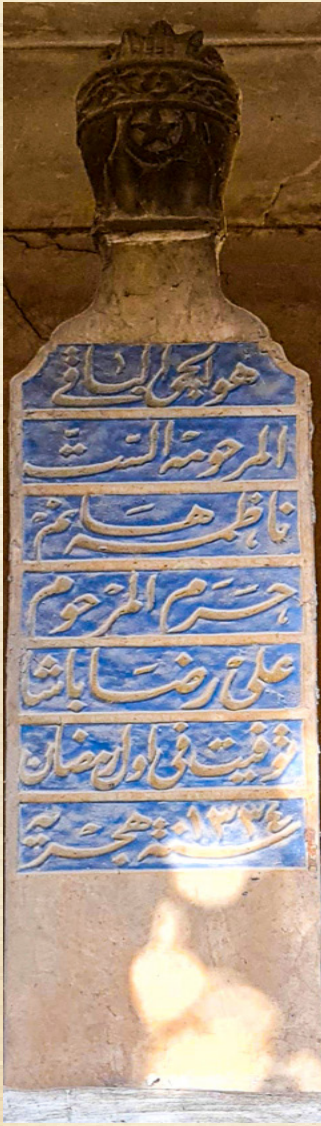 هو الحي الباقي
المرحومه الست
ناظمه هانم
حرم المرحوم
علي رضا باشا
توفيت في اول رمضان
سنة ١٣٣٤ هجريه